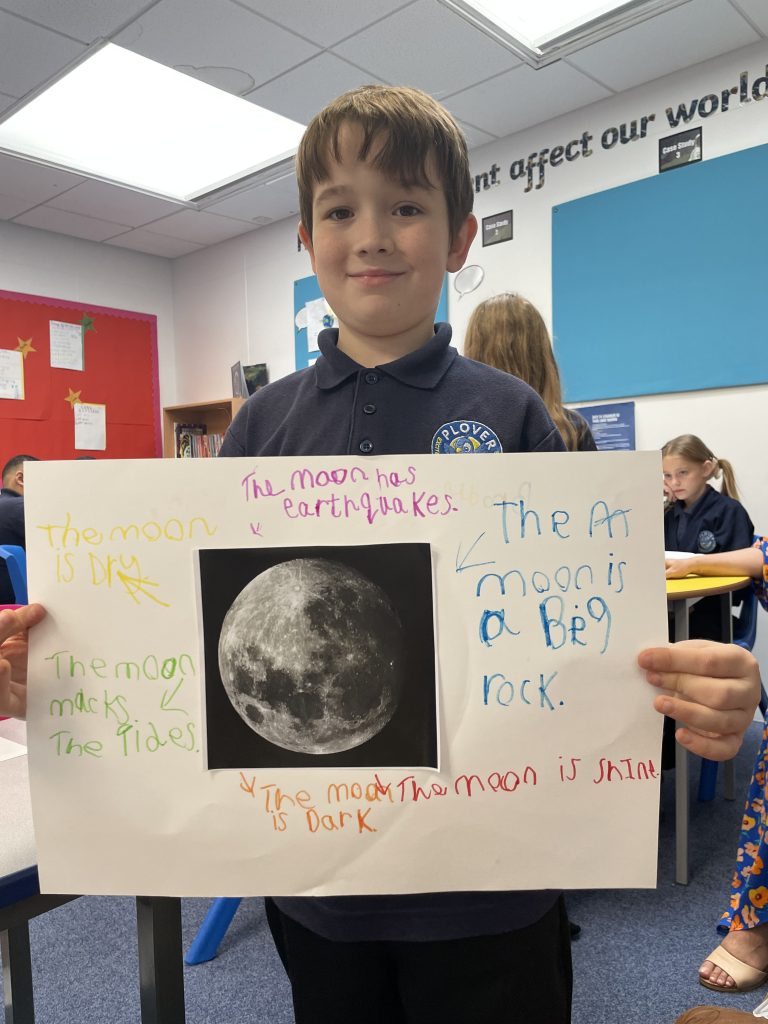 affect our world
Case Study
3
Case Study
2
PLOVER
The moon has
earthquakes.
The moon
is Dry
The
moon is
a Big
rock.
The moon
macks
The Tides.
The moon
is Dark.
The moon is shine